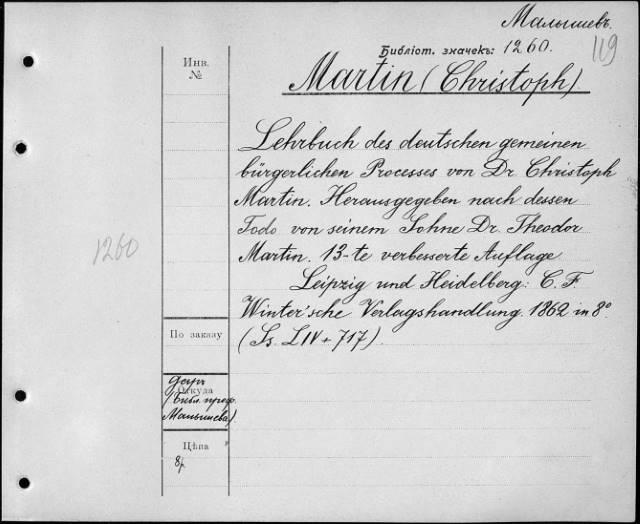 Малышевъ.
119
Библіот. значекъ: 1260.
Инв.
№
Martin (Christoph).
Lehrbuch des deutschen gemeinen
bürgerlichen Processes von Dr. Christoph
Martin. Herausgegeben nach dessen
Todo von seinem Sohne Dr. Theodor
Martin. 13-te verbesserte Auflage
1260
Leipzig und Heidelberg: C. F.
Winter'sche Verlagshandlung. 1862 in 8°
(Ss. LIV + 717).
По заказу
Откуда
даръ
(Библ. проф.
Малышева).
Цѣна
8р